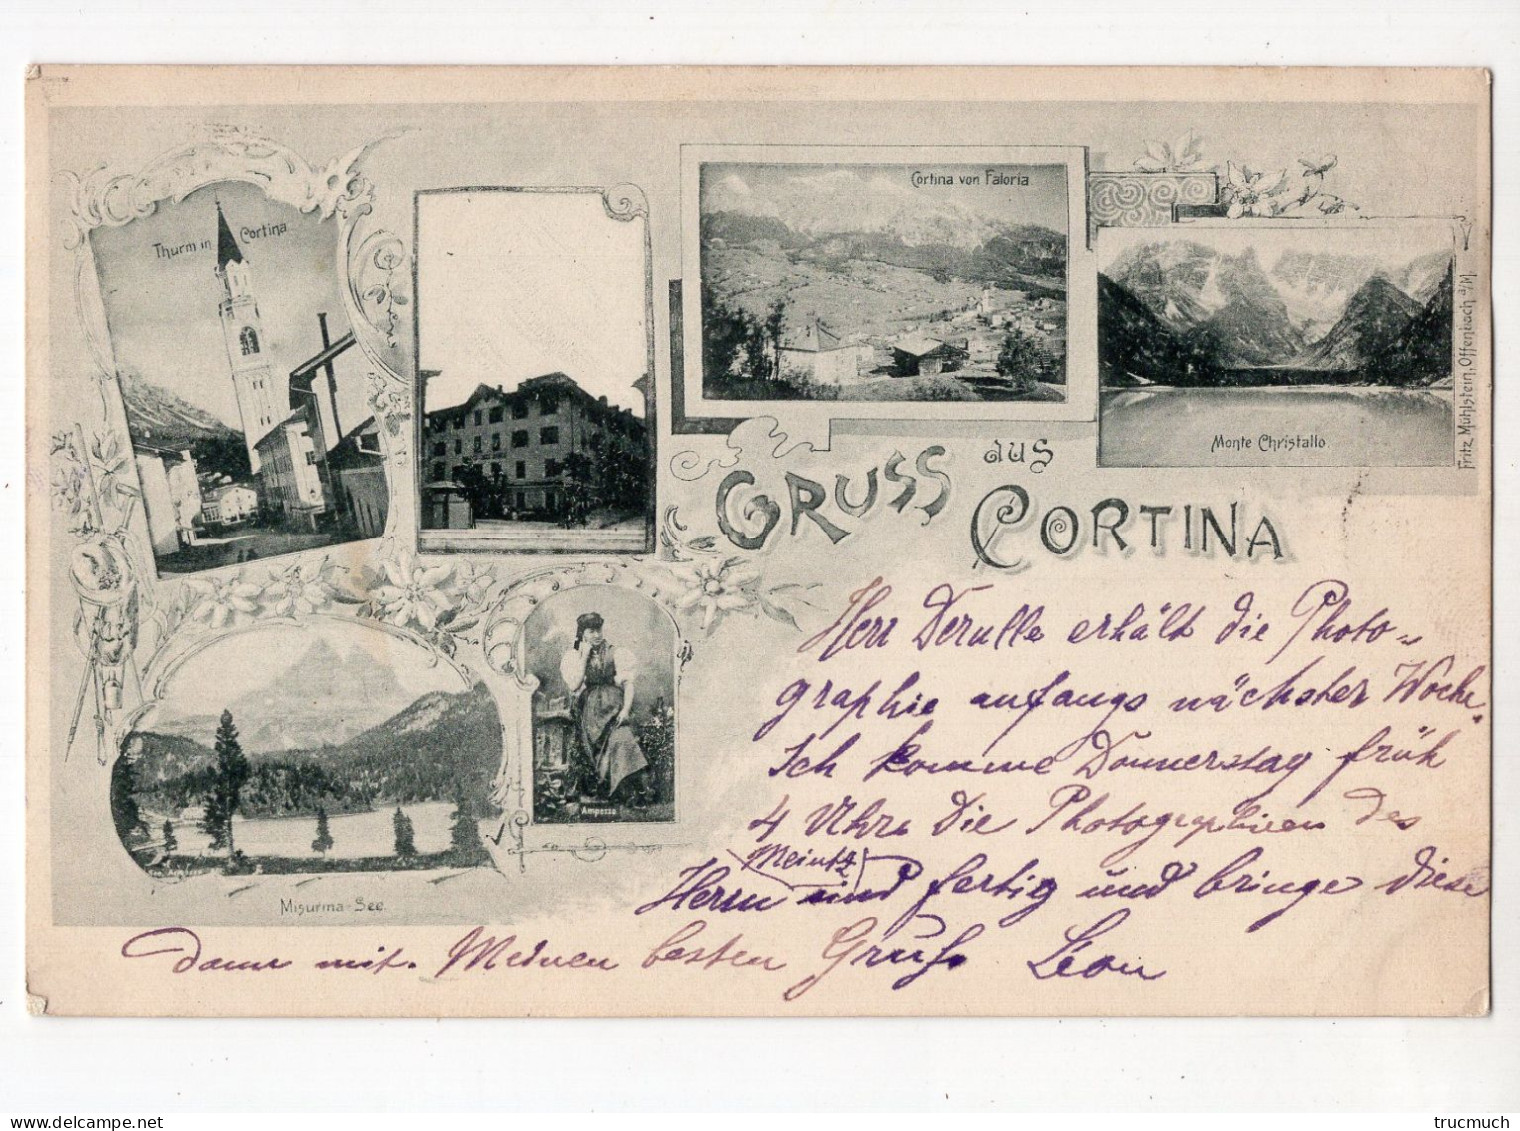 Thurm in Cortina
Cortina von Faloria.
Monte Christallo.
Fritz Mühlstein, Offenbach a/M.
GRUSS aus
CORTINA
Ampezzo
Misurina-See.
Herr Derulle erhält die Photo-
graphie anfangs nächster Woche.
Ich komme Donnerstag früh
4 Uhr. Die Photographieen des
Meintz
Herrn sind fertig und bringe diese
dann mit. Meinen besten Gruß. Leon
trucmuch
delcampe.net